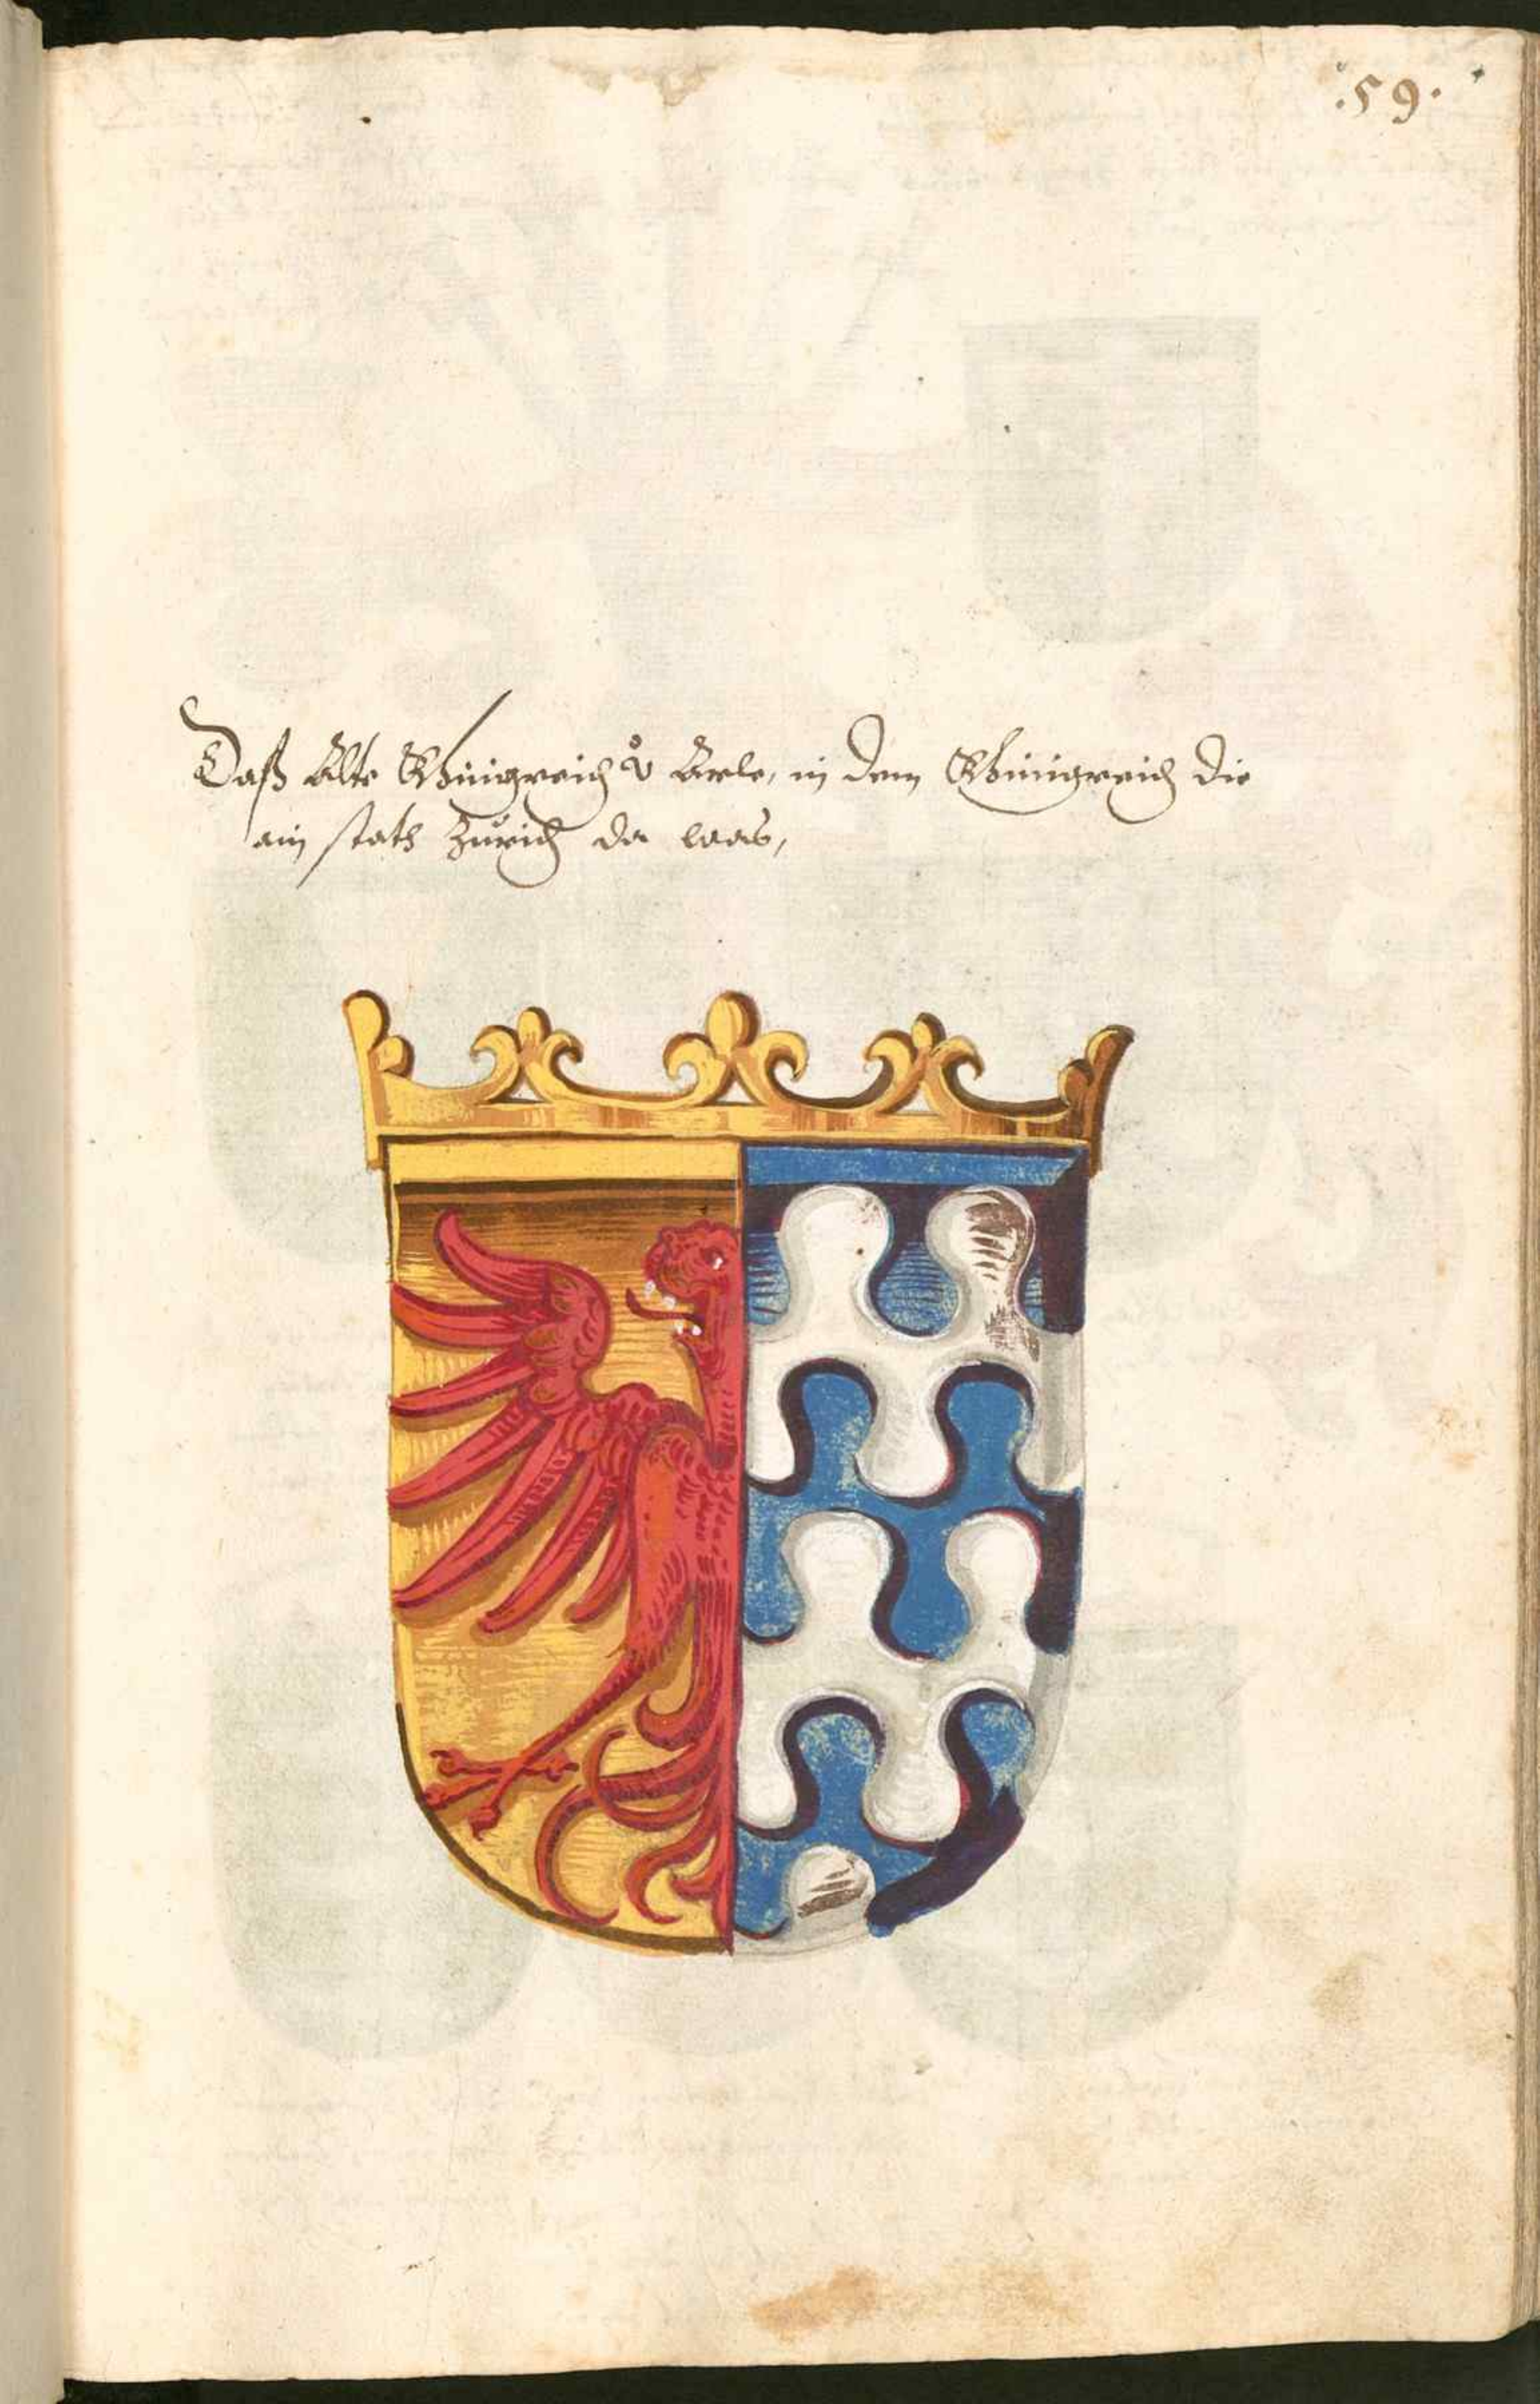 .59.
Daß Alte Khünigreich v̊ Arle, in dem Khünigreich die
ain statt Zürich da was,